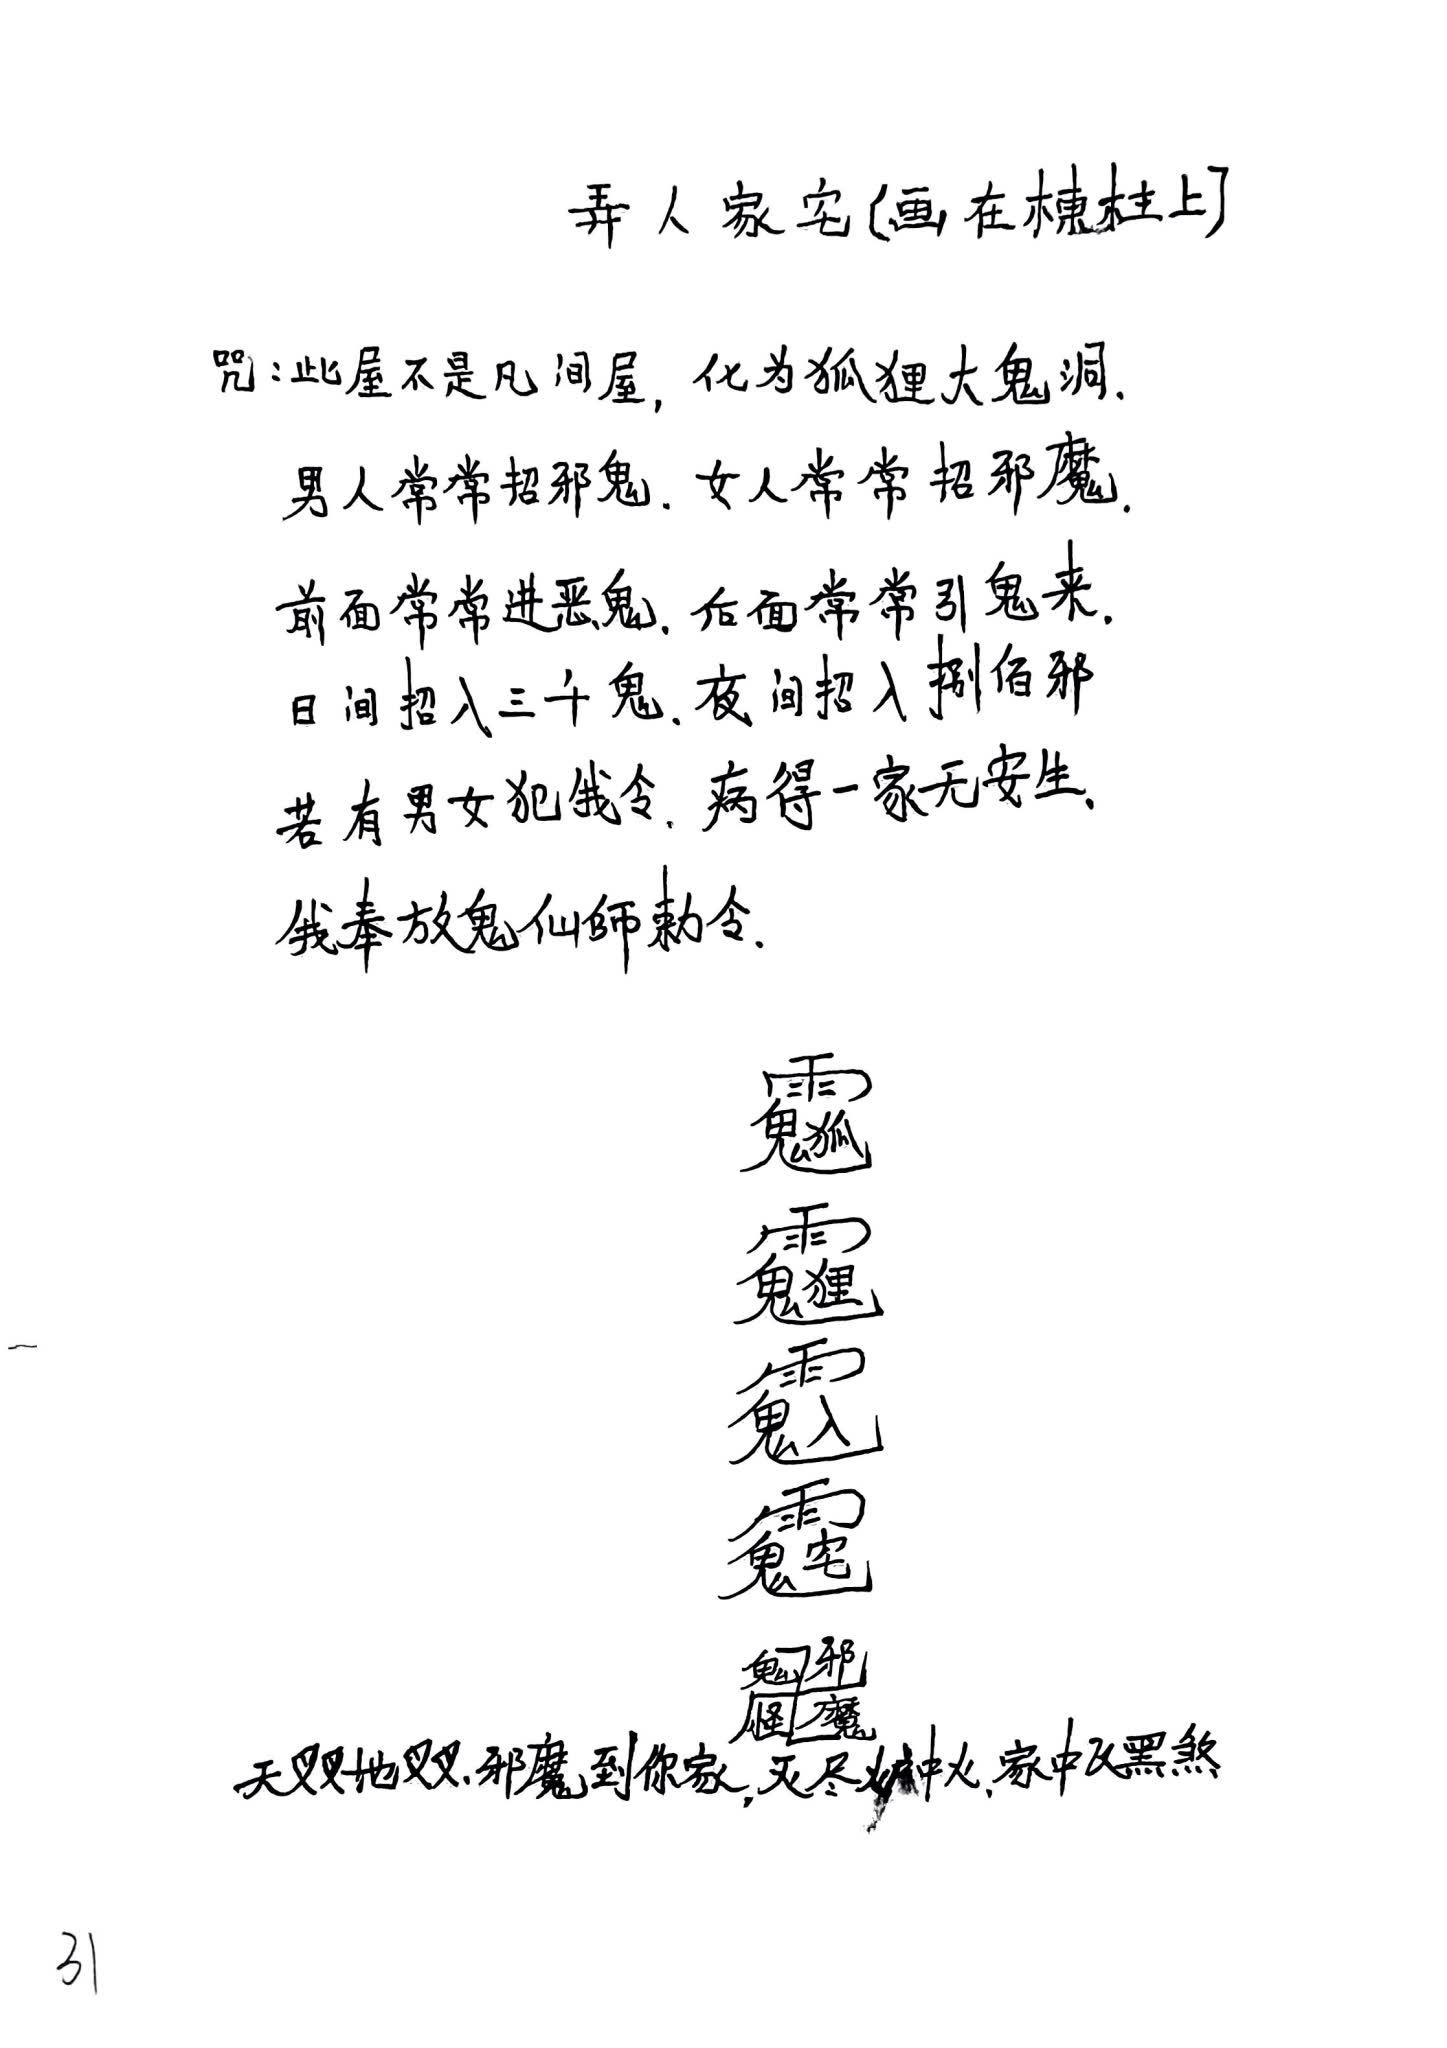 弄人家宅(画在栋柱上]
咒:此屋不是凡间屋,化为狐狸大鬼洞.
男人常常招邪鬼.女人常常招邪魔.
前面常常进恶鬼.后面常常引鬼来.
日间招入三千鬼.夜间招入捌佰邪
若有男女犯俄令.病得一家无安生、
俄奉放鬼仙師勅令.
雨鬼狐
雨鬼狸
雨鬼入
雨鬼宅
鬼邪
怪魔
天㕛㕛地㕛㕛.邪魔到你家,灭尽中火.家中黑煞
31